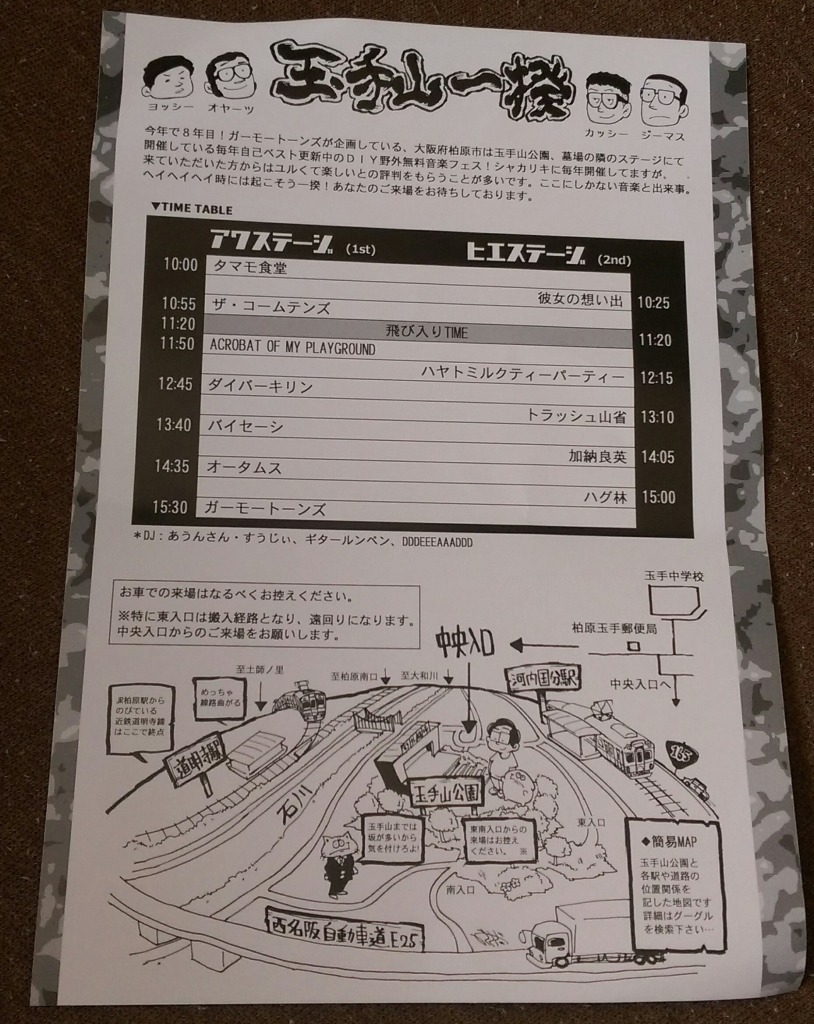 玉手山一揆
ヨッシー オヤーツ
カッシー ジーマス
今年で8年目!ガーモートーンズが企画している、大阪府柏原市は玉手山公園、墓場の隣のステージにて
開催している毎年自己ベスト更新中のDIY野外無料音楽フェス!シャカリキに毎年開催してますが、
来ていただいた方からはユルくて楽しいとの評判をもらうことが多いです。ここにしかない音楽と出来事。
ヘイヘイヘイ時には起こそう一揆!あなたのご来場をお待ちしております。
▼TIME TABLE
アクステージ (1st) ヒエステージ (2nd)
10:00 タマモ食堂
彼女の想い出 10:25
10:55 ザ・コームテンズ
11:20 飛び入りTIME 11:20
11:50 ACROBAT OF MY PLAYGROUND
ハヤトミルクティーパーティー 12:15
12:45 ダイバーキリン
トラッシュ山省 13:10
13:40 バイセーシ
加納良英 14:05
14:35 オータムス
ハグ林 15:00
15:30 ガーモートーンズ
*DJ:あうんさん・すうじぃ、ギタールンペン、DDDEEEAAADDD
お車での来場はなるべくお控えください。
※特に東入口は搬入経路となり、遠回りになります。
中央入口からのご来場をお願いします。
玉手中学校
柏原玉手郵便局
中央入口へ
中央入口
至土師ノ里
至柏原南口
至大和川
河内国分駅
JR柏原駅から
のびている
近鉄道明寺線
はここで終点
めっちゃ
線路曲がる
道明寺駅
石川
玉手山公園
165
玉手山までは
坂が多いから
気を付けろよ!
東南入口からの
来場はお控え
ください。 ※
東入口
南入口
西名阪自動車道E25
◆簡易MAP
玉手山公園と
各駅や道路の
位置関係を
記した地図です
詳細はグーグル
を検索下さい…